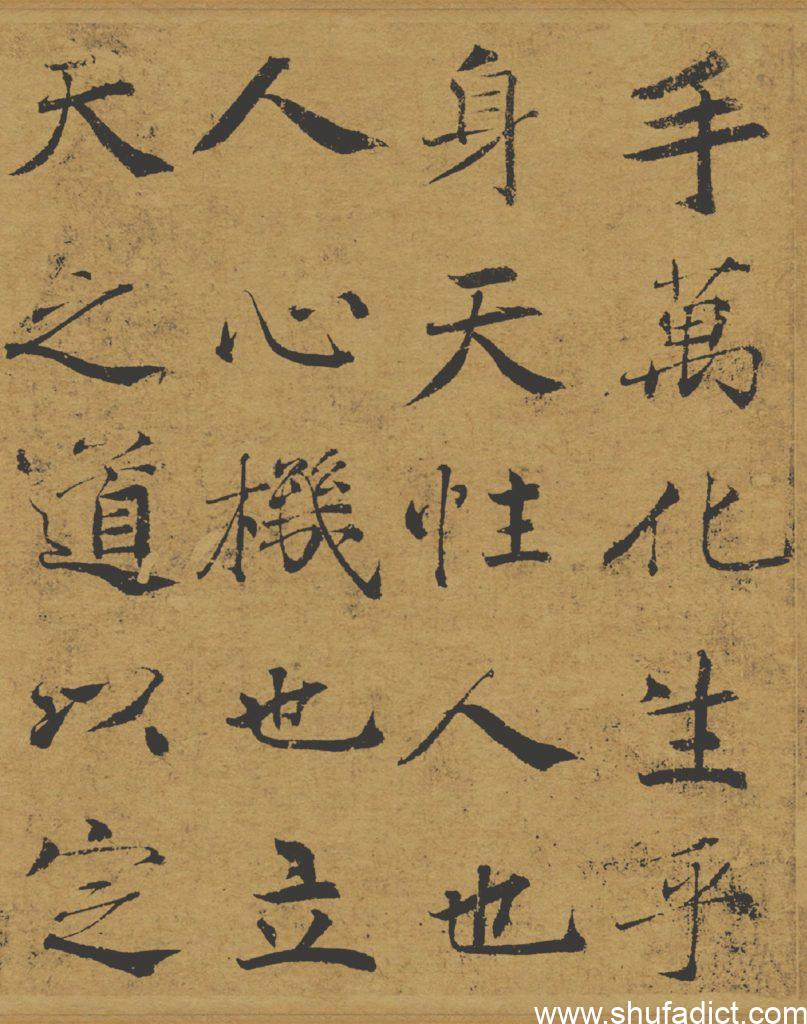 手萬化生乎
身天性人也
人心機也立
天之道以定
www.shufadict.com